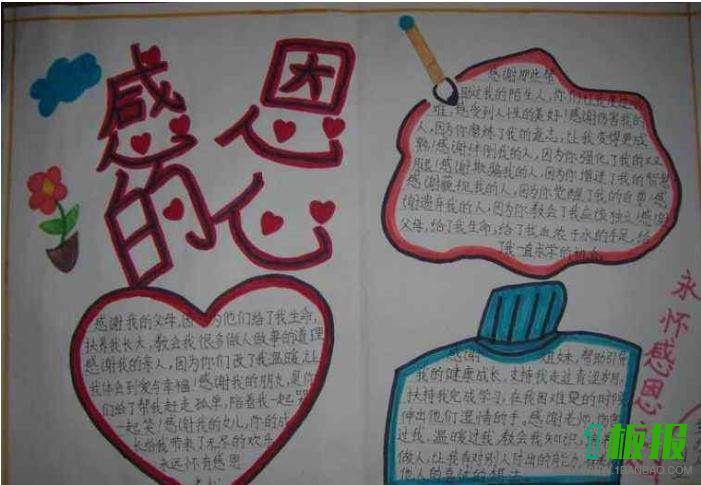 感恩
的心
感谢我的父母,因为他们给了我生命,
扶养我长大,教会我很多做人做事的道理
感谢我的亲人,因为你们
我体会到爱与幸福!感谢我的朋友,是你
们给了帮我赶走孤单,陪着我一起哭
一起笑!感谢我的女儿,你的成
长给我带来了无尽的欢乐
永远怀有感恩
感谢那些帮
过我的陌生人,你们让我
感受到人性的美好!感谢伤害我的
人,因为你磨练了我的意志,让我变得更成
熟!感谢绊倒我的人,因为你强化了我的双
腿!感谢欺骗我的人,因为你增进了我的智慧
感谢藐视我的人,因为你觉醒了我的自尊!感
谢遗弃我的人,因为你教会了我应该独立!感谢
父母,给了我生命,给了我血浓于水的手足,给
了我一直
感谢 姐妹,帮助引导
我的健康成长,支持我走过青涩岁月,
扶持我完成学习,在我困难的时候
伸出他们温情的手。感谢老师,
过我,温暖过我,教会我知识,
做人,让我
永怀感恩
板报
WWW.1BANBAO.COM